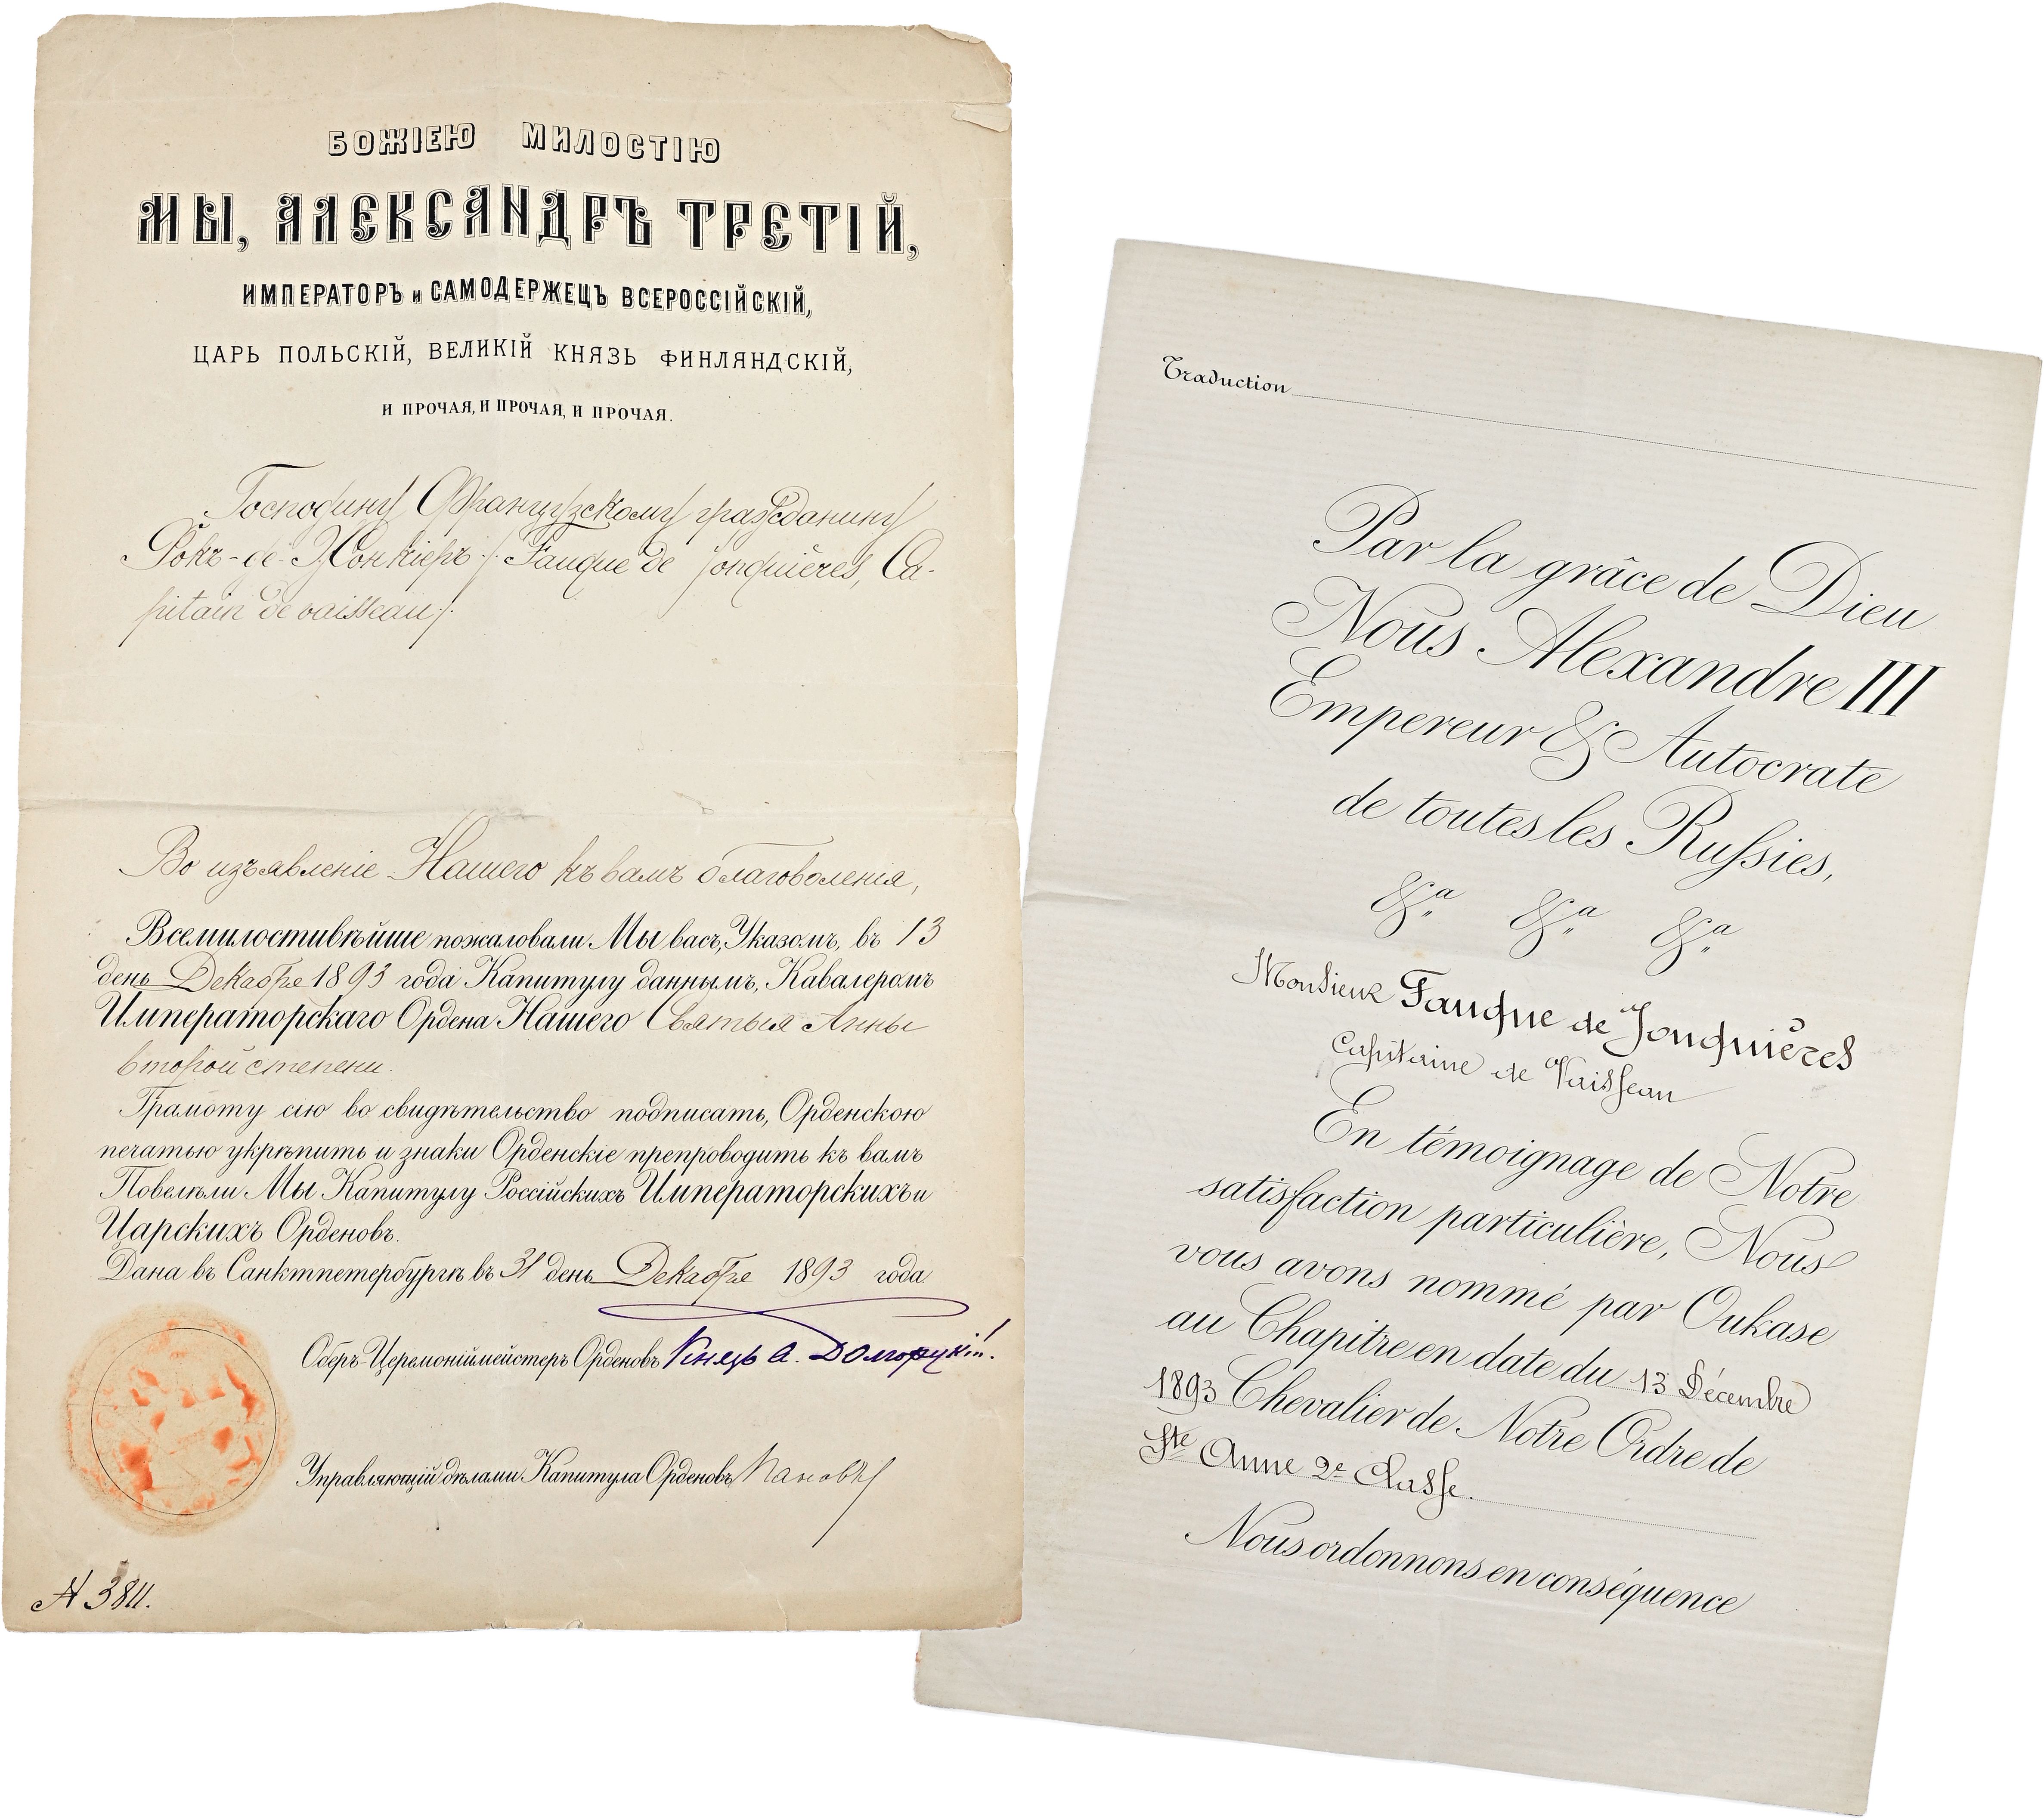 БОЖІЕЮ МИЛОСТІЮ
МЫ, АЛЕКСАНДРЪ ТРЕТІЙ,
ИМПЕРАТОРЪ и САМОДЕРЖЕЦЪ ВСЕРОССІЙСКІЙ,
ЦАРЬ ПОЛЬСКІЙ, ВЕЛИКІЙ КНЯЗЬ ФИНЛЯНДСКІЙ,
И ПРОЧАЯ, И ПРОЧАЯ, И ПРОЧАЯ.
Господину Французскому гражданину
Фокъ-де-Жонкіеръ /: Fauque de Jonquières, Ca-
pitain de vaisseau/:.
Во изъявленіе Нашего къ вамъ благоволенія,
Всемилостивѣйше пожаловали Мы васъ, Указомъ, въ 13
день Декабре 1893 года Капитулу даннымъ, Кавалеромъ
Императорскаго Ордена Нашего Святыя Анны
второй степени.
Грамоту сію во свидѣтельство подписать, Орденскою
печатью укрѣпить и знаки Орденскіе препроводить къ вамъ
Повелѣли Мы Капитулу Россійскихъ Императорскихъ и
Царскихъ Орденовъ.
Дана въ Санктпетербургѣ въ 31 день Декабре 1893 года
Оберъ-Церемоніймейстеръ Орденовъ Князь А. Долгорукій.
Управляющій дѣлами Капитула Орденовъ
№ 3811.
Traduction
Par la grâce de Dieu
Nous Alexandre III
Empereur & Autocrate
de toutes les Russies,
&a &a &a
Monsieur Fauque de Jonquières
Capitaine de Vaisseau
En témoignage de Notre
satisfaction particulière, Nous
vous avons nommé par Oukase
au Chapitre en date du 13 Décembre
1893 Chevalier de Notre Ordre de
Ste Anne 2e Classe.
Nous ordonnons en conséquence